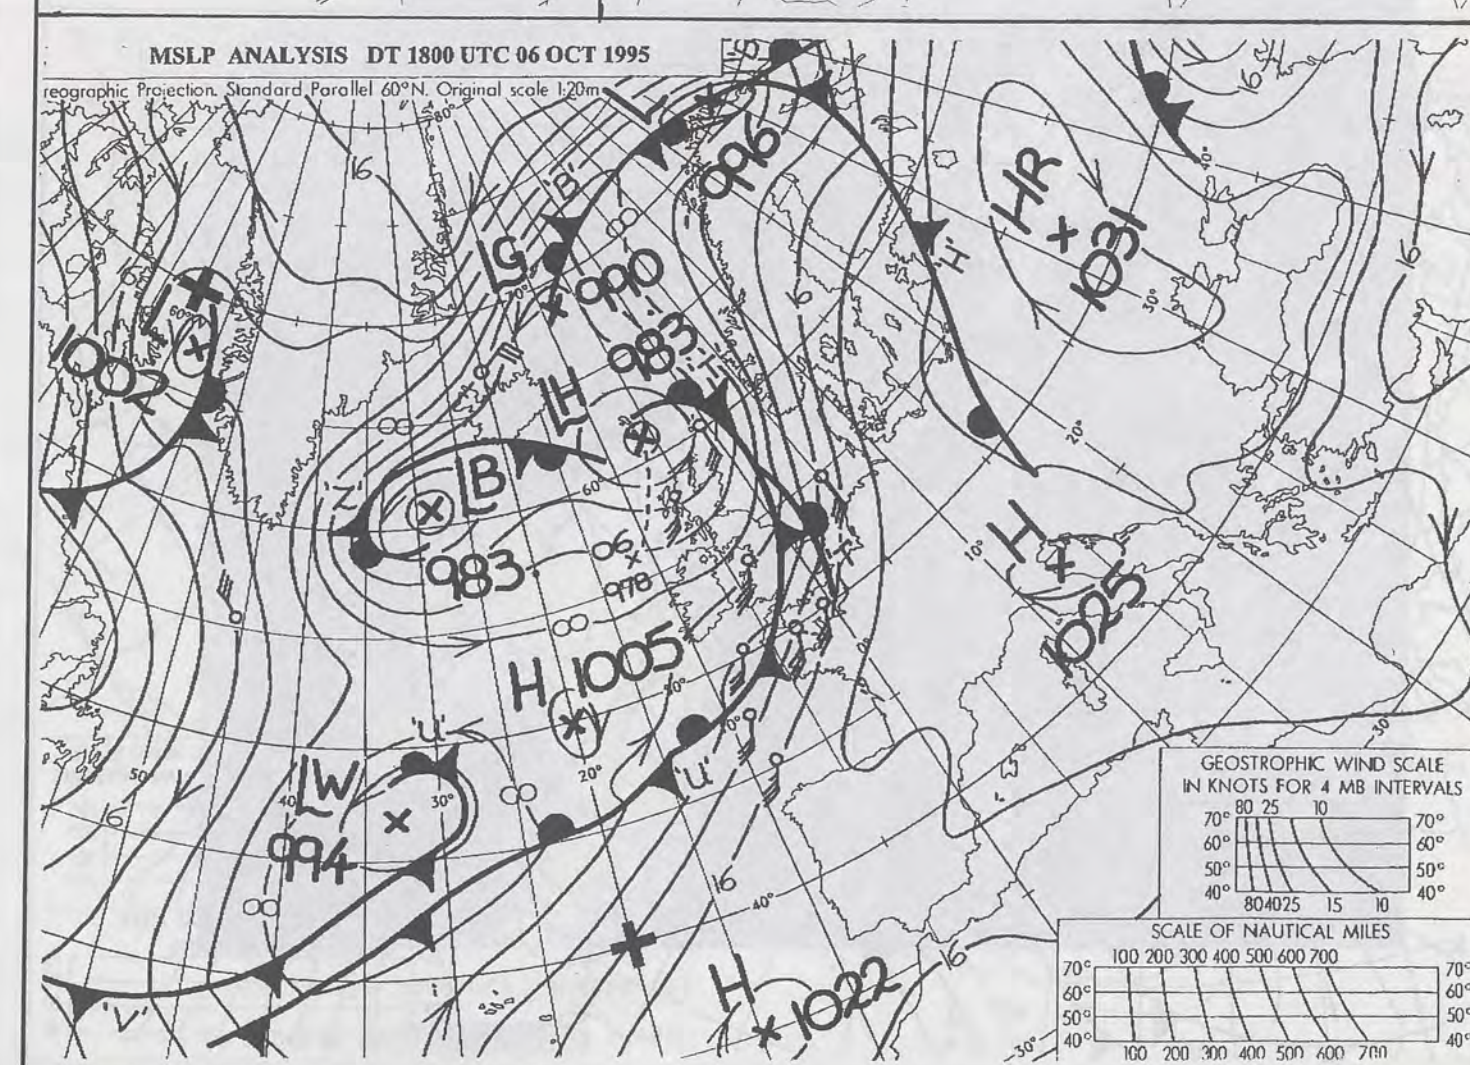 MSLP ANALYSIS DT 1800 UTC 06 OCT 1995
reographic Projection. Standard Parallel 60°N. Original scale 1:20m
80°
16
16
L
996
40°
'B'
HR
1031
30°
'H'
16
LG
990
70°
8
16
L
1002
60°N
16
983
LH
8
20°
'Z'
LB
983
60°
06
978
10°
H
1025
0°
8
H 1005
50°
10°
'U'
LW
994
40°
30°
20°
8
50
16
'U'
8
16
40°
H
1022
16
'V'
30°
30°
GEOSTROPHIC WIND SCALE
IN KNOTS FOR 4 MB INTERVALS
80 25 10
70° 70°
60° 60°
50° 50°
40° 40°
80 40 25 15 10
SCALE OF NAUTICAL MILES
100 200 300 400 500 600 700
70° 70°
60° 60°
50° 50°
40° 40°
100 200 300 400 500 600 700